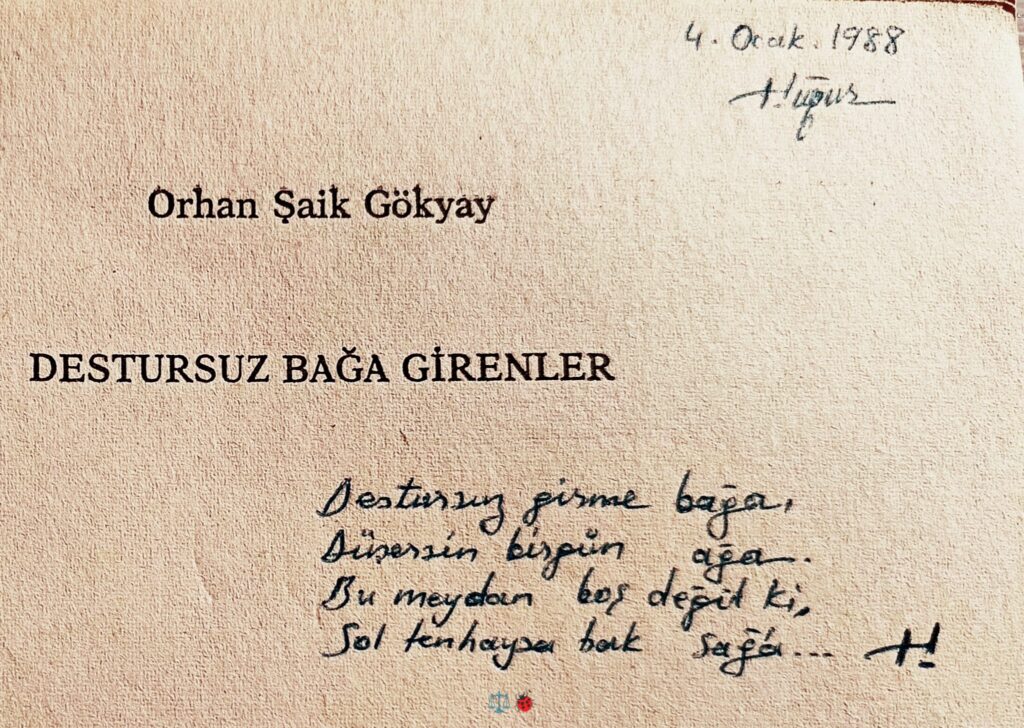 4. Ocak. 1988
H. Uğur
Orhan Şaik Gökyay
DESTURSUZ BAĞA GİRENLER
Destursuz girme bağa,
Düşersin birgün ağa.
Bu meydan boş değil ki,
Sol tenhaysa bak sağa... H!